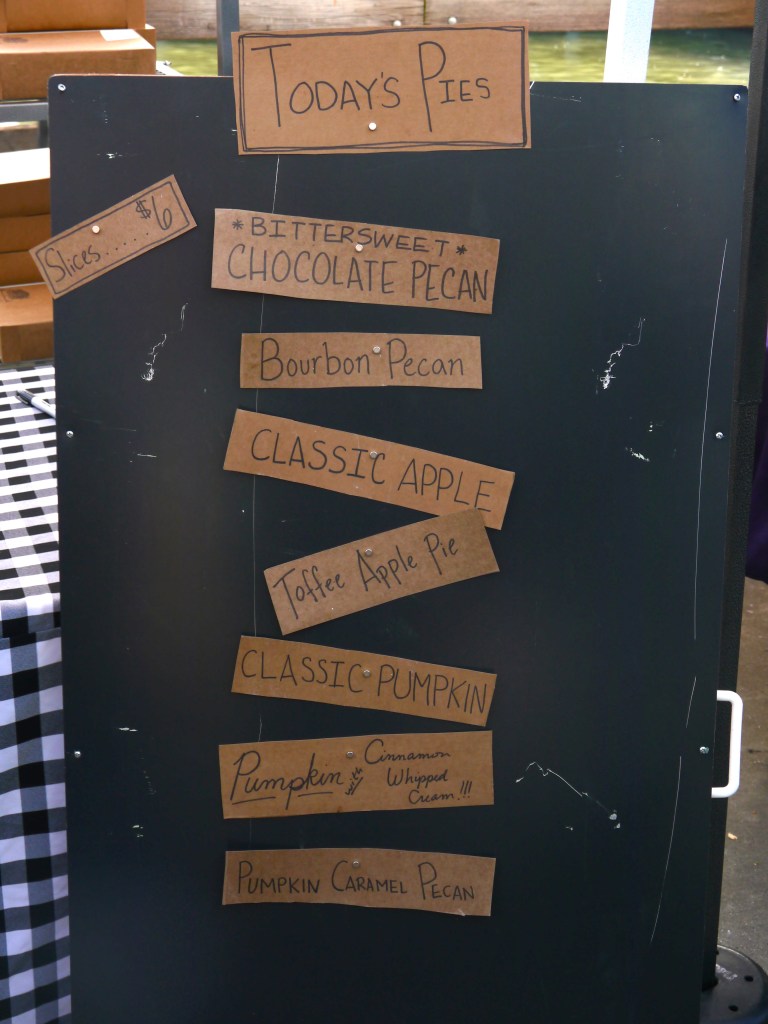 TODAY'S PIES
Slices......$6
*BITTERSWEET*
CHOCOLATE PECAN
Bourbon Pecan
CLASSIC APPLE
Toffee Apple Pie
CLASSIC PUMPKIN
Pumpkin & Cinnamon
Whipped
Cream!!!
PUMPKIN CARAMEL PECAN